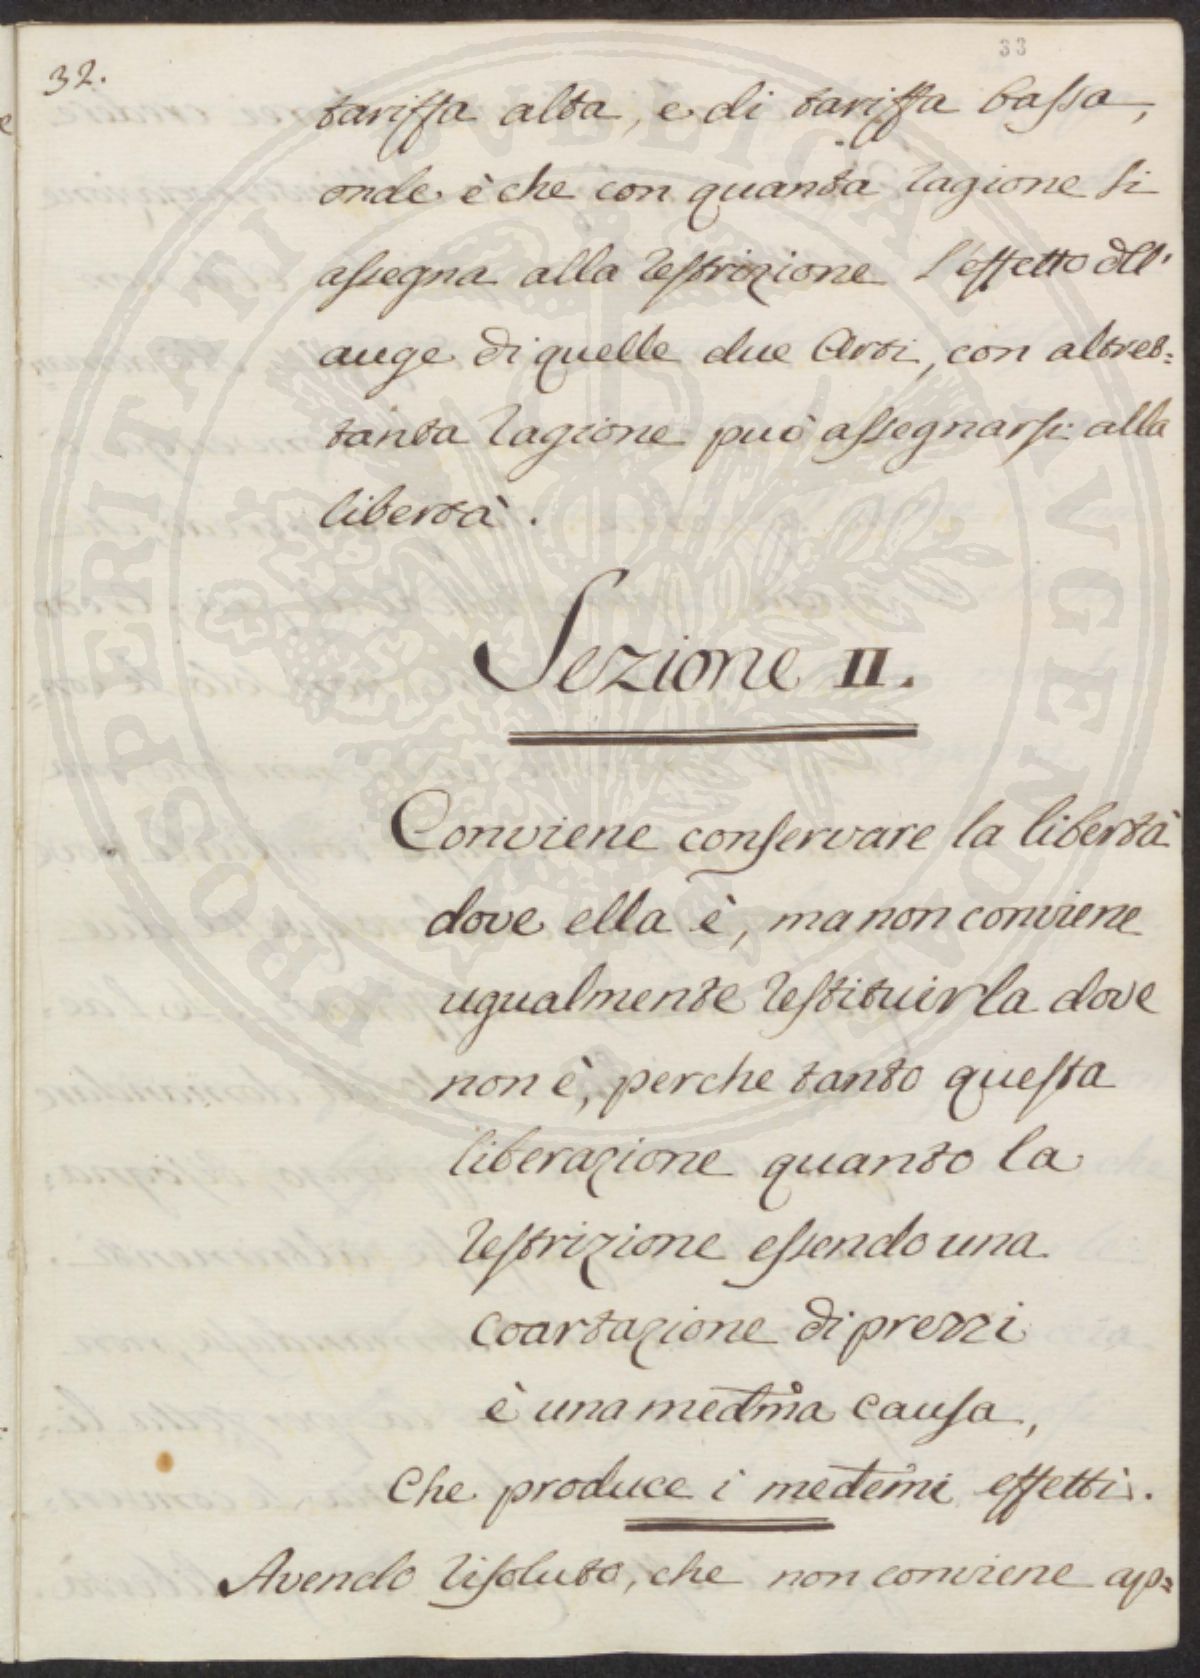 33
32.
tariffa alta, e di tariffa bassa,
onde è che con quanta ragione si
assegna alla restrizione l'effetto dell'
auge di quelle due Arti, con altret=
tanta ragione può assegnarsi alla
libertà.
Sezione II.
Conviene conservare la libertà
dove ella è, ma non conviene
ugualmente restituirla dove
non è, perche tanto questa
liberazione quanto la
restrizione essendo una
coartazione di prezzi
è una medma causa,
Che produce i medemi effetti.
Avendo risoluto, che non conviene ap=
PROSPERITATI PUBLICAE AUGENDAE